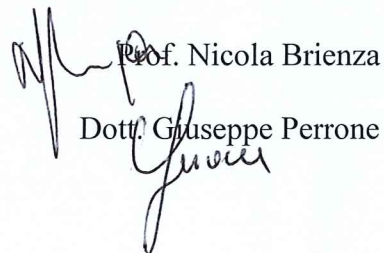 Prof. Nicola Brienza
Dott. Giuseppe Perrone